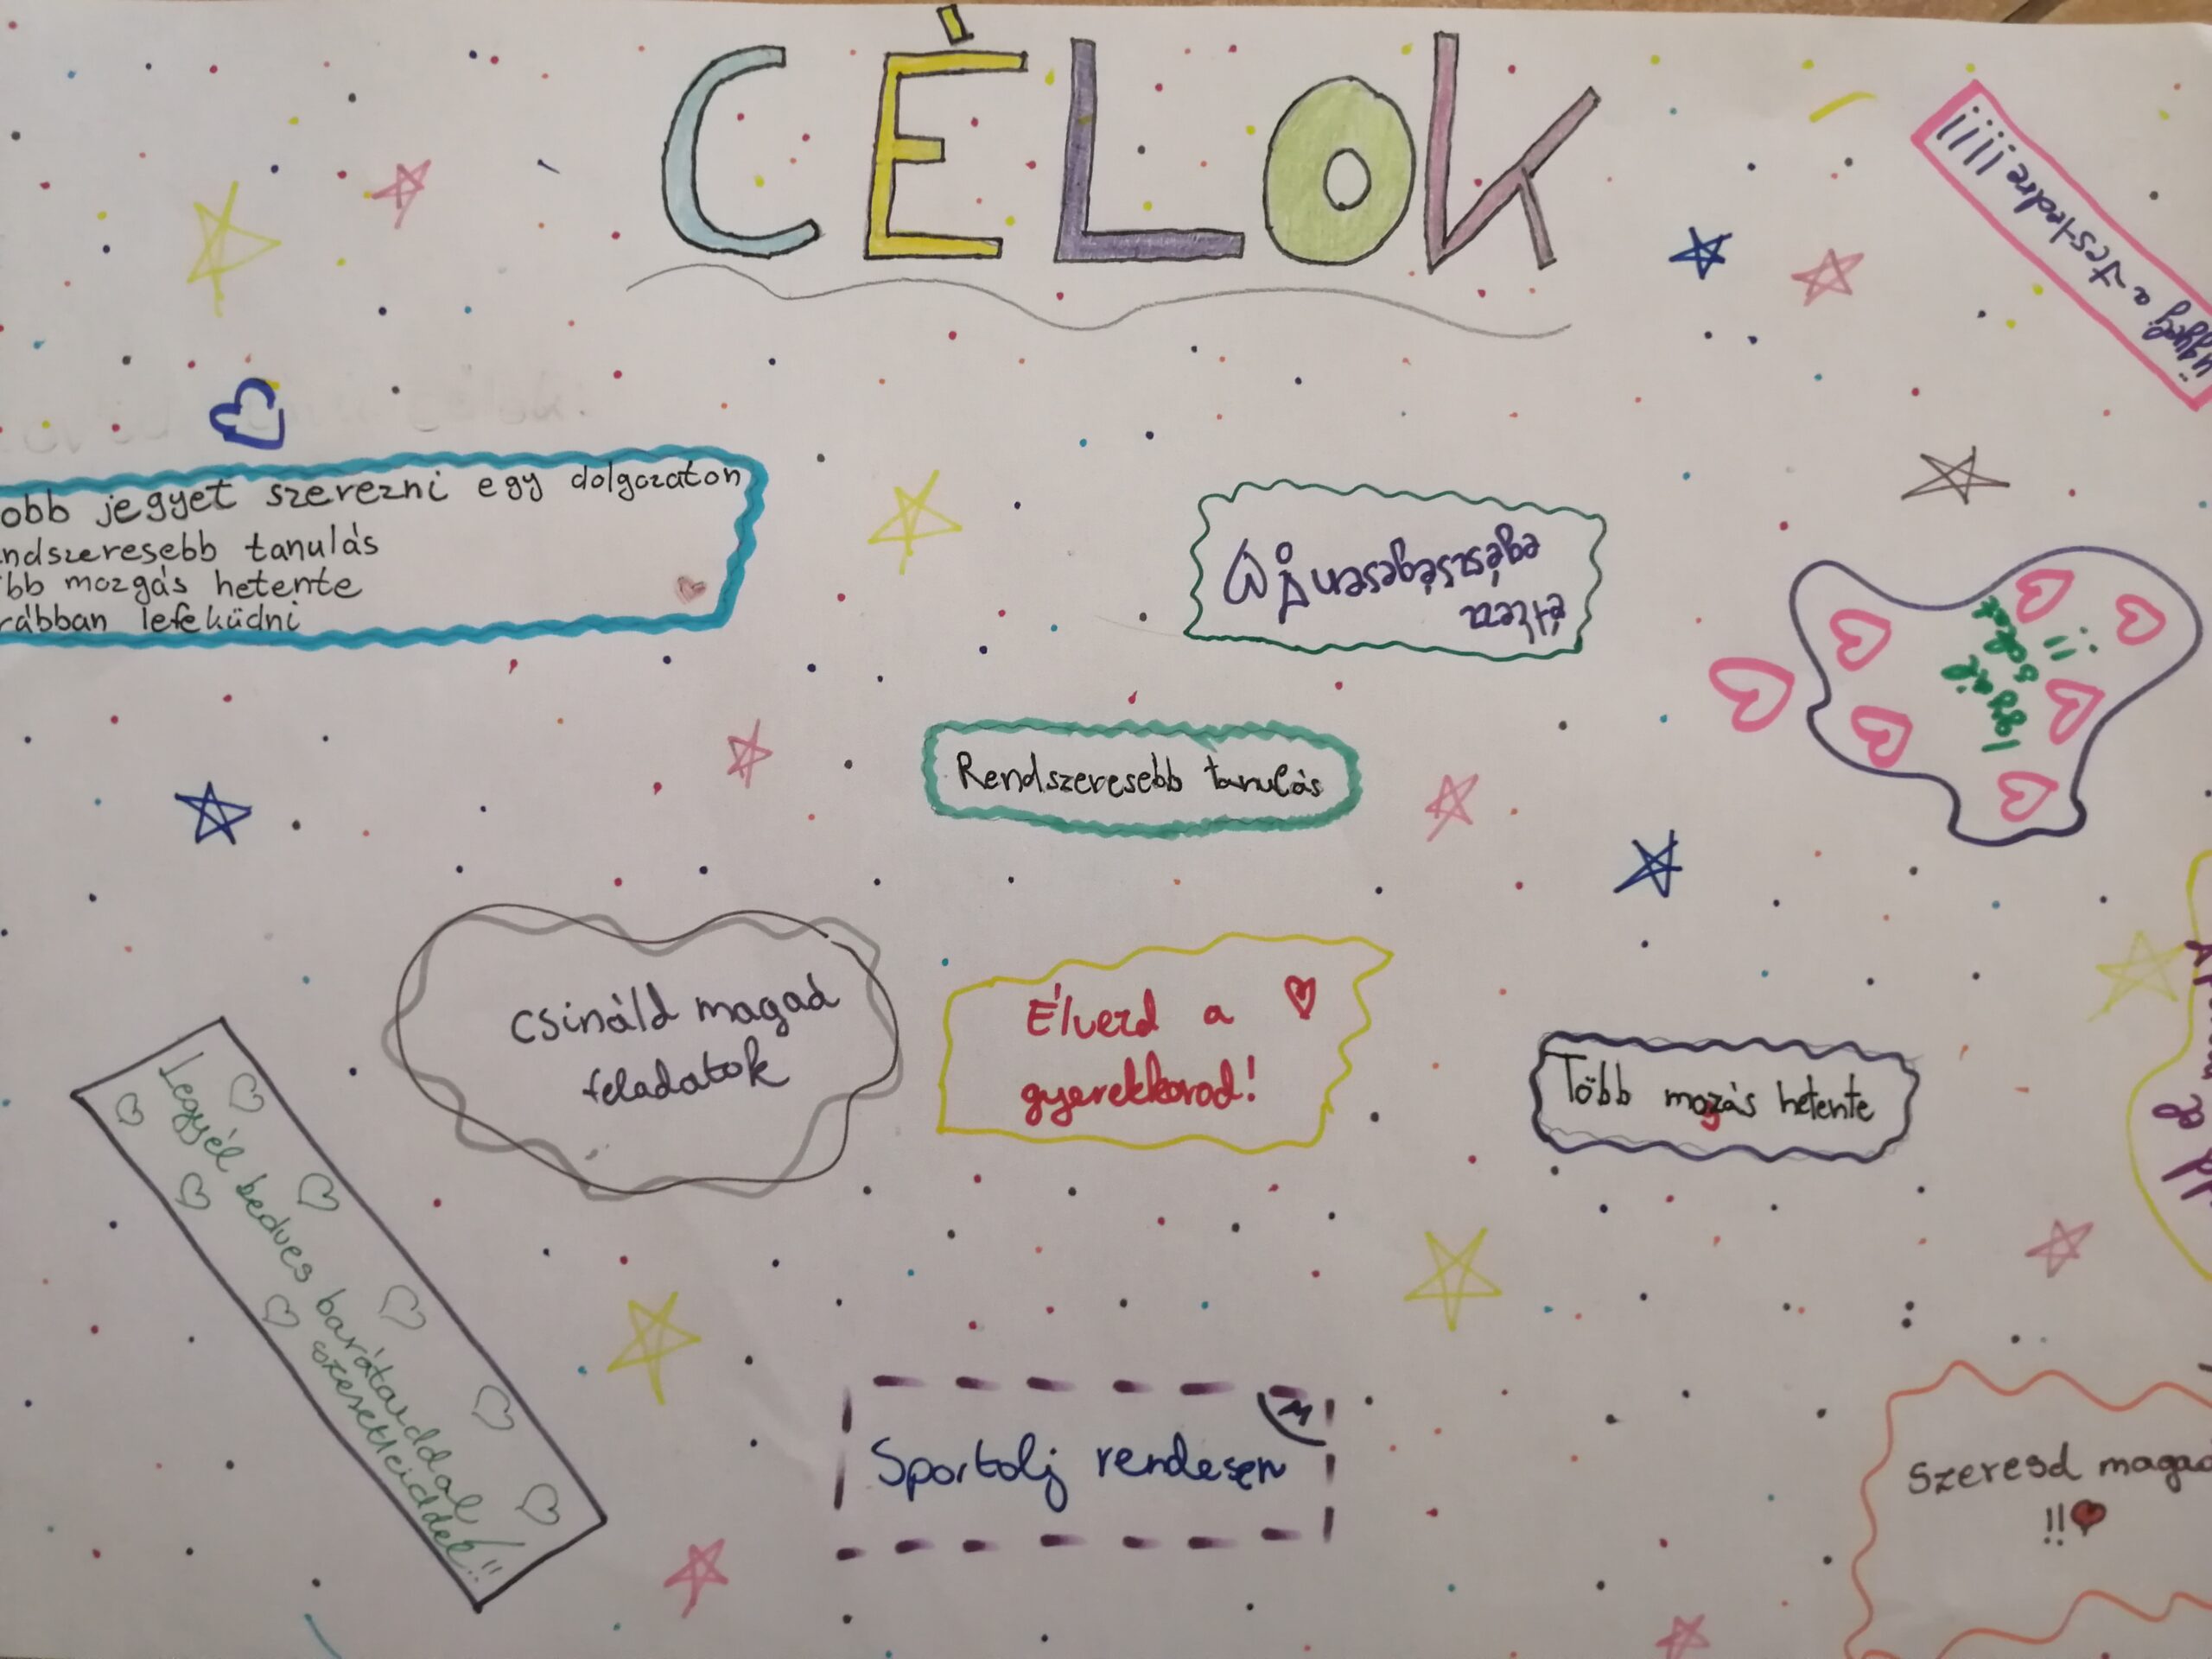 CÉLOK
ügyelj a testedre!!!!!
obb jegyet szerezni egy dolgozaton
ndszeresebb tanulás
bb mozgás hetente
rábban lefeküdni
étkezz
egészségesen
Igyál
sokat
!!
Rendszeresebb tanulás
Csináld magad
feladatok
Élvezd a
gyerekkorod!
Több mozgás hetente
Legyél bedves barátaiddal/
szeretteiddel!!
Sportolj rendesen
Szeresd magad
!!